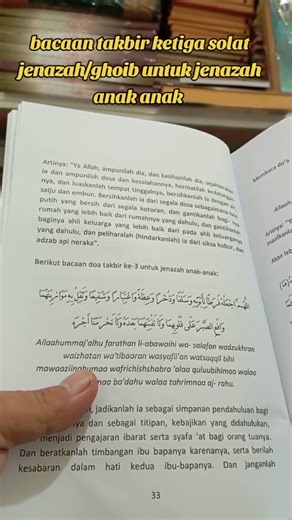 bacaan takbir ketiga solat
jenazah/ghoib untuk jenazah
anak anak
Artinya: "Ya Allah, ampunilah dia, dan kasihanilah dia, sejahterakan
ia dan ampunilah dosa dan kesalahannya, hormatilah kedatangan
nya, dan luaskanlah tempat tinggalnya, bersihkanlah ia dengan air
salju dan embun. Bersihkanlah ia dari segala dosa sebagaimana kain
putih yang bersih dari segala kotoran, dan gantikanlah bagi
rumah yang lebih baik dari rumahnya yang dahulu, dan gantikanlah
baginya ahli keluarga yang lebih baik dari pada ahli keluarganya
yang dahulu, dan peliharalah (hindarkanlah) ia dari siksa kubur, dan
adzab api neraka".
Berikut bacaan doa takbir ke-3 untuk jenazah anak-anak:
اللهم اجعله فرطا لأبويه وسلفا وذخرا وعظة واعتبارا وشفيعا وثقل به موازينهما
وافرغ الصبر على قلوبهما ولا تفتنهما بعده ولا تحرمنا أجره
Allaahummaj'alhu farathan li-abawaihi wa- salafan wadzukhran
waizhatan wa'tibaaran wasyafii'an watsaqqil bihi
mawaaziinahumaa wafrichishshabra 'alaa quluubihimaa walaa
maa ba'dahu walaa tahrimnaa aj- rahu.
jadikanlah ia sebagai simpanan pendahuluan bagi
nya dan sebagai titipan, kebajikan yang didahulukan,
menjadi pengajaran ibarat serta syafa 'at bagi orang tuanya.
Dan beratkanlah timbangan ibu bapanya karenanya, serta berilah
kesabaran dalam hati kedua ibu-bapanya. Dan janganlah
33
Membaca do'a